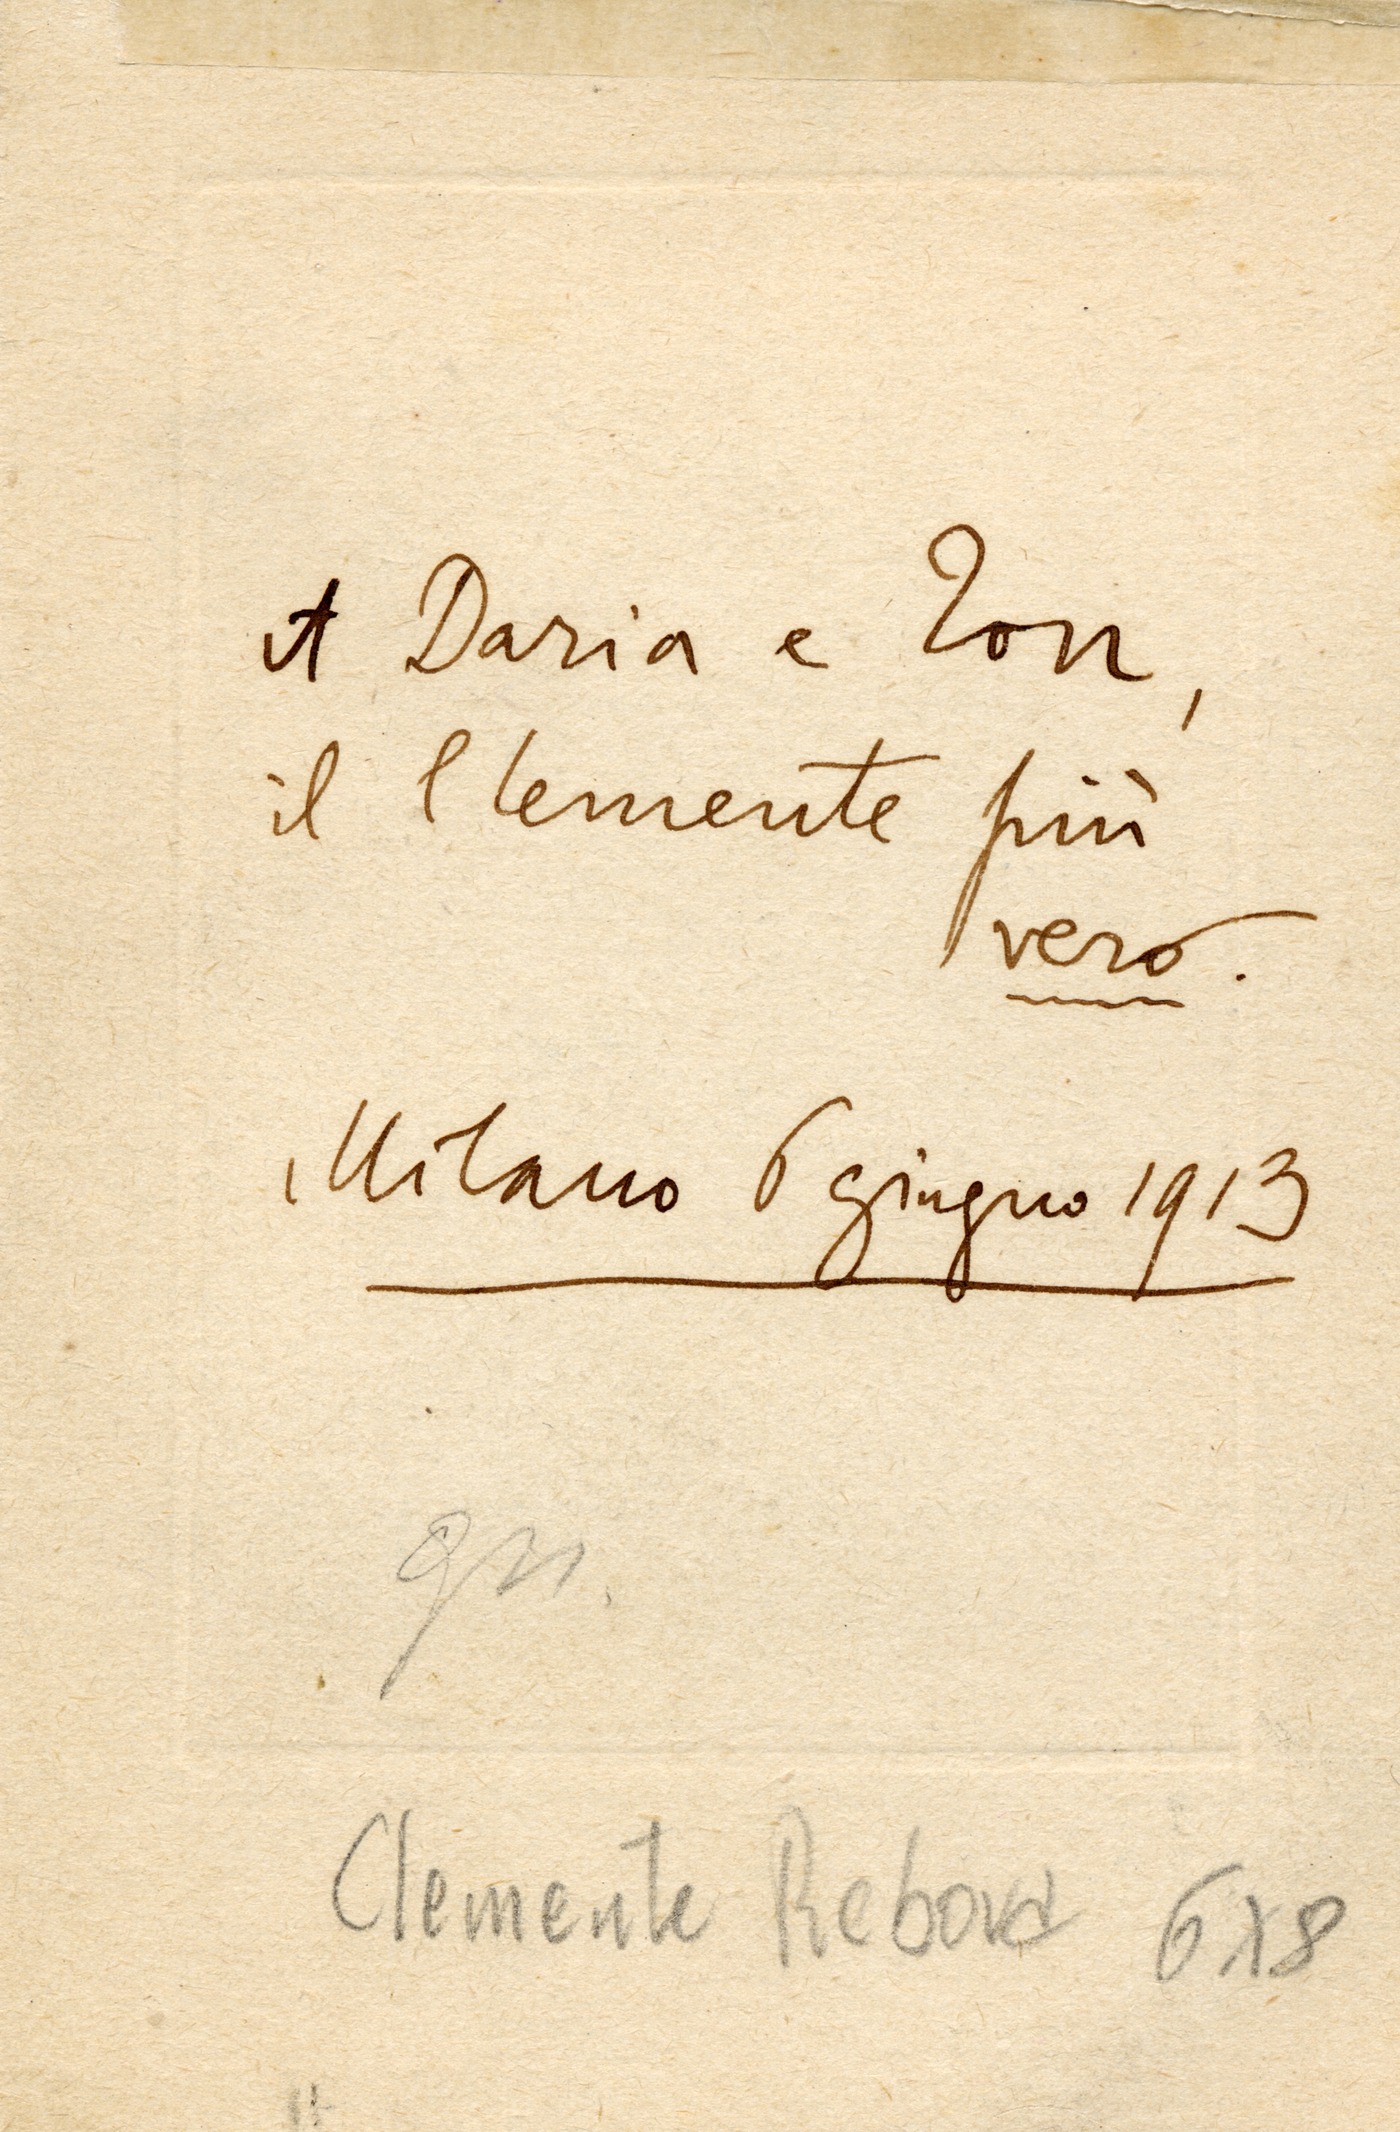 A Daria e Zon,
il Clemente più
vero.
Milano 6 giugno 1913
Clemente Rebora 6x8